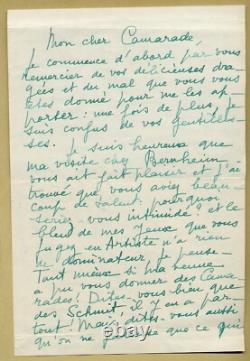 Mon cher Camarade,
Je commence d'abord par vous
remercier de vos délicieuses dra-
gées et du mal que vous vous
êtes donné pour me les ap-
porter : une fois de plus, je
suis confus de vos gentilles-
ses. Je suis heureuse que
ma visite chez Bernheim
vous ait fait plaisir et j'ai
trouvé que vous aviez beau-
coup de talent : pourquoi
seriez-vous intimidé ? et le
bleu de mes yeux que vous
jugez en Artiste n'a rien
de dominateur, je pense -
Tant mieux si ma venue
a pu vous donner des Cama-
rades ! Dites-vous bien que
des Schmit, il y en a par-
tout ! Mais dites-vous aussi
qu'on ne que ce qui
thecrea.com